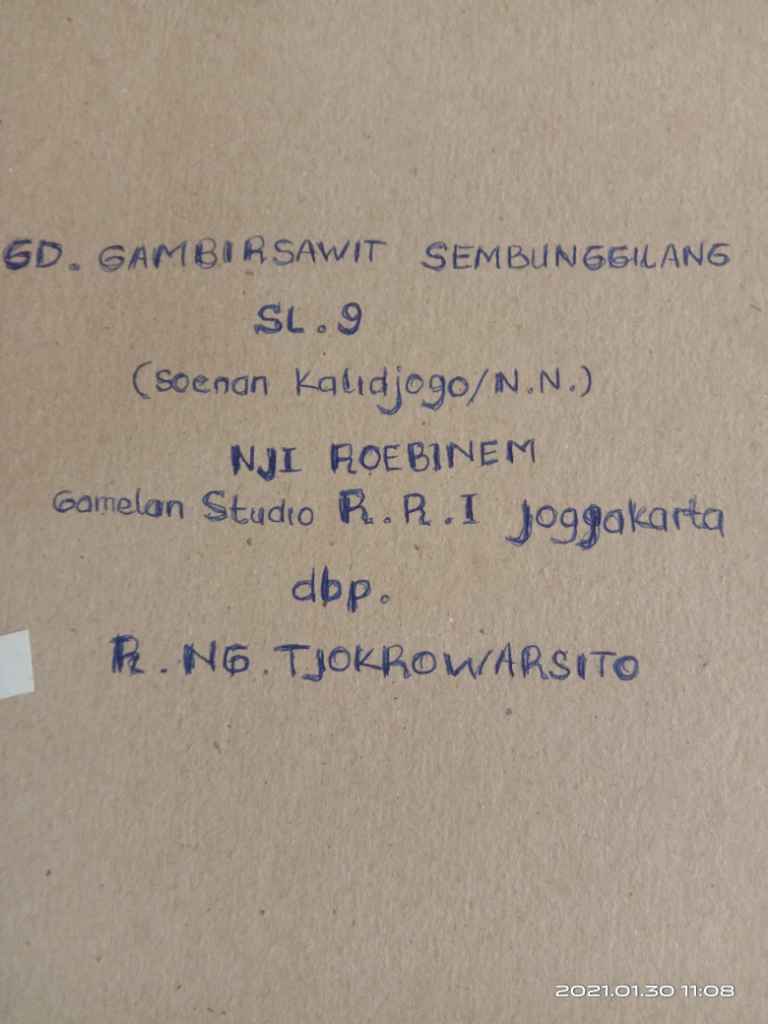 GD. GAMBIRSAWIT SEMBUNGGILANG
SL. 9
(Soenan Kalidjogo/N.N.)
NJI ROEBINEM
Gamelan Studio R.R.I Jogjakarta
dbp.
R. NG. TJOKROWARSITO
2021.01.30 11:08